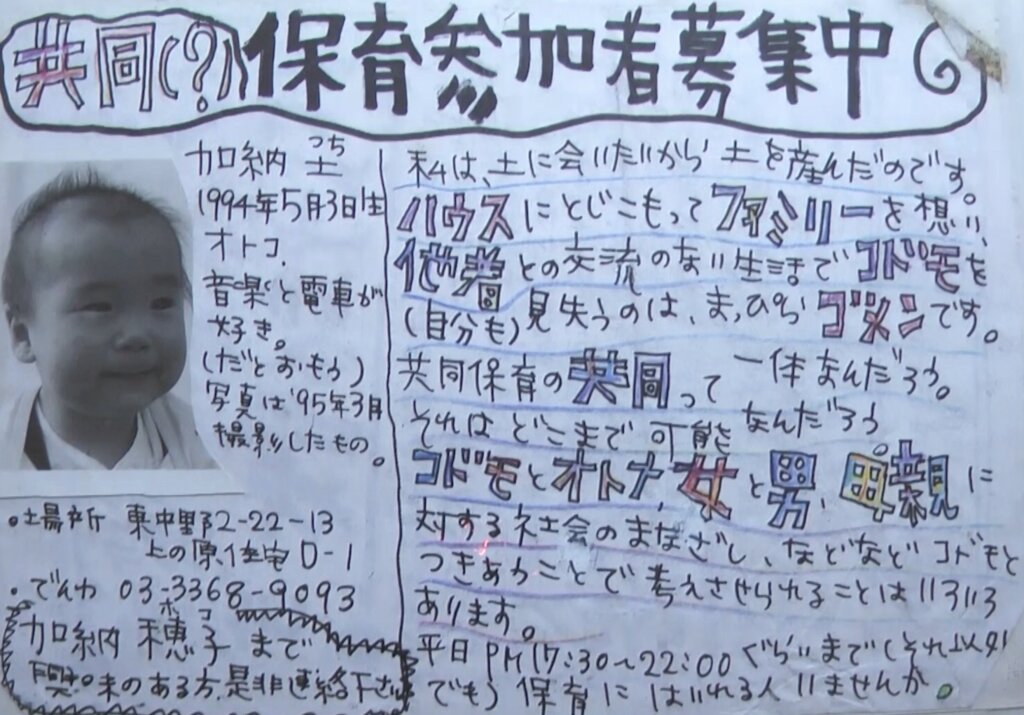 共同(?)保育参加者募集中
加納 土
つち
1994年5月3日生
オトコ.
音楽と電車が
好き。
(だとおもう)
写真は'95年3月
撮影したもの。
•場所 東中野2-22-13
上の原住宅D-1
•でんわ 03-3368-9093
ホコ
加納 穂子 まで
興味のある方是非連絡下さい
私は、土に会いたいから 土を産んだのです。
ハウスにとじこもってファミリーを想い、
他者との交流のない生活でコドモを
(自分も)見失うのは、まっぴらゴメンです。
共同保育の共同って 一体なんだろう。
それはどこまで可能なんだろう。
コドモとオトナ,女と男、母親に
対する社会のまなざし、などなどコドモと
つきあうことで考えさせられることはいろいろ
あります。
平日PM17:30~22:00ぐらいまで(それ以外
でも)保育にはいれる人いませんか。